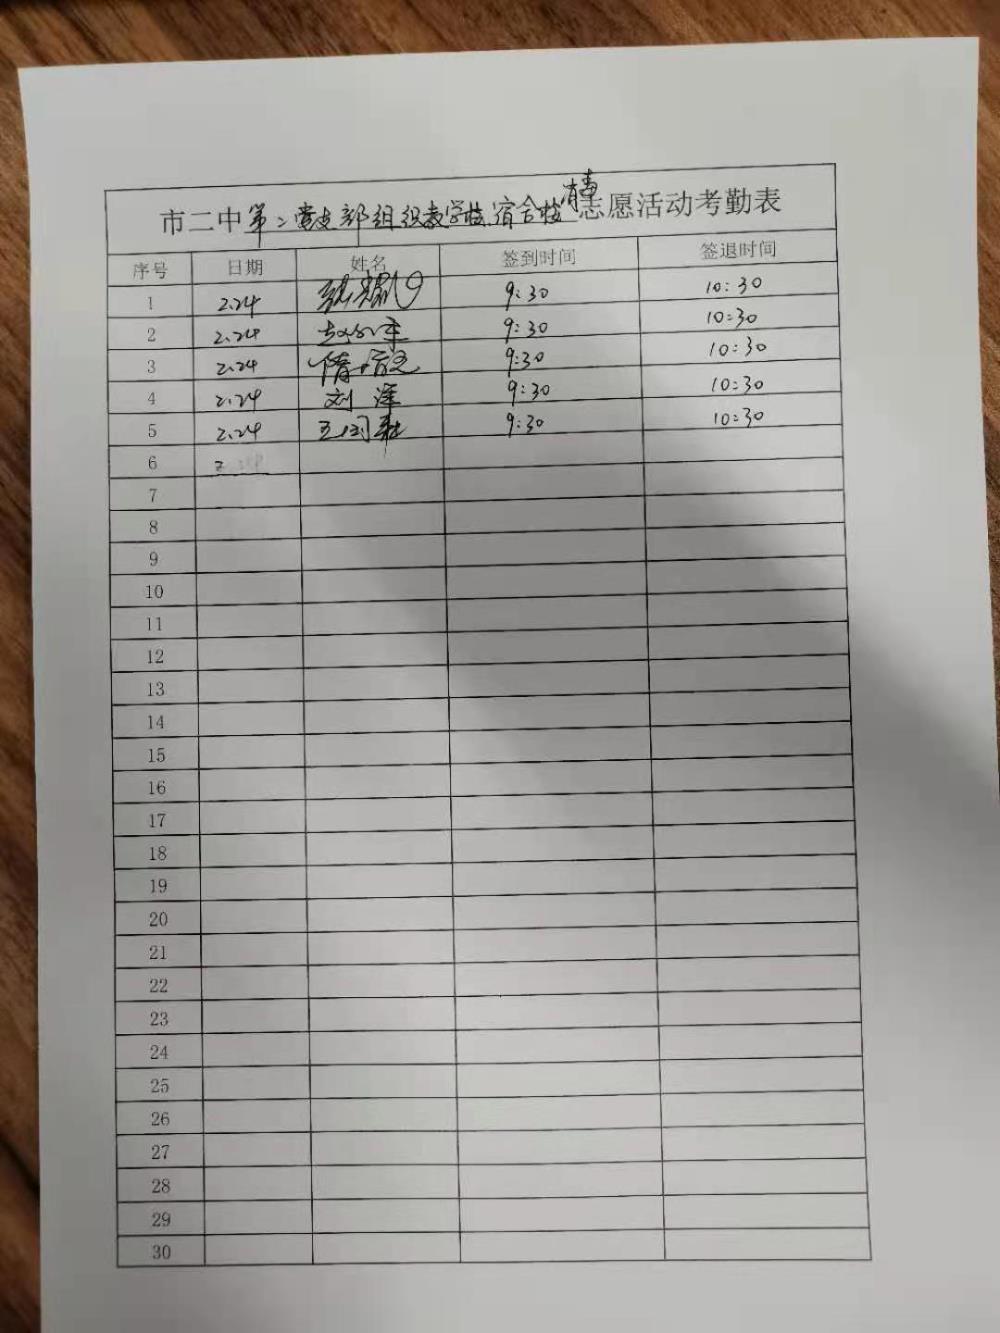 市二中第二党支部组织教学楼宿舍楼消毒志愿活动考勤表
序号 日期 姓名 签到时间 签退时间
1 2.24 9:30 10:30
2 2.24 9:30 10:30
3 2.24 9:30 10:30
4 2.24 刘洋 9:30 10:30
5 2.24 王国社 9:30 10:30
6 2.
7
8
9
10
11
12
13
14
15
16
17
18
19
20
21
22
23
24
25
26
27
28
29
30